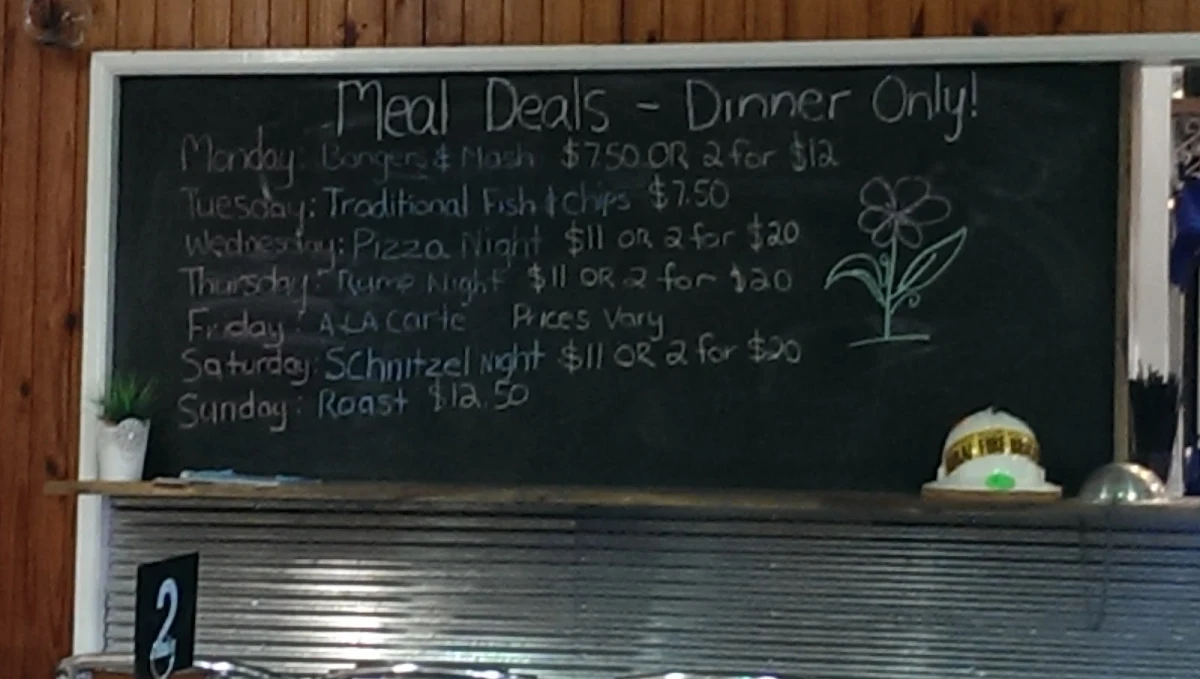 Meal Deals - Dinner Only!
Monday: Bangers & Mash $7.50 OR 2 for $12
Tuesday: Traditional Fish & chips $7.50
Wednesday: Pizza Night $11 OR 2 for $20
Thursday: Rump Night $11 OR 2 for $20
Friday: A LA Carte Prices Vary
Saturday: SChnitzel Night $11 OR 2 for $20
Sunday: Roast $12.50
2